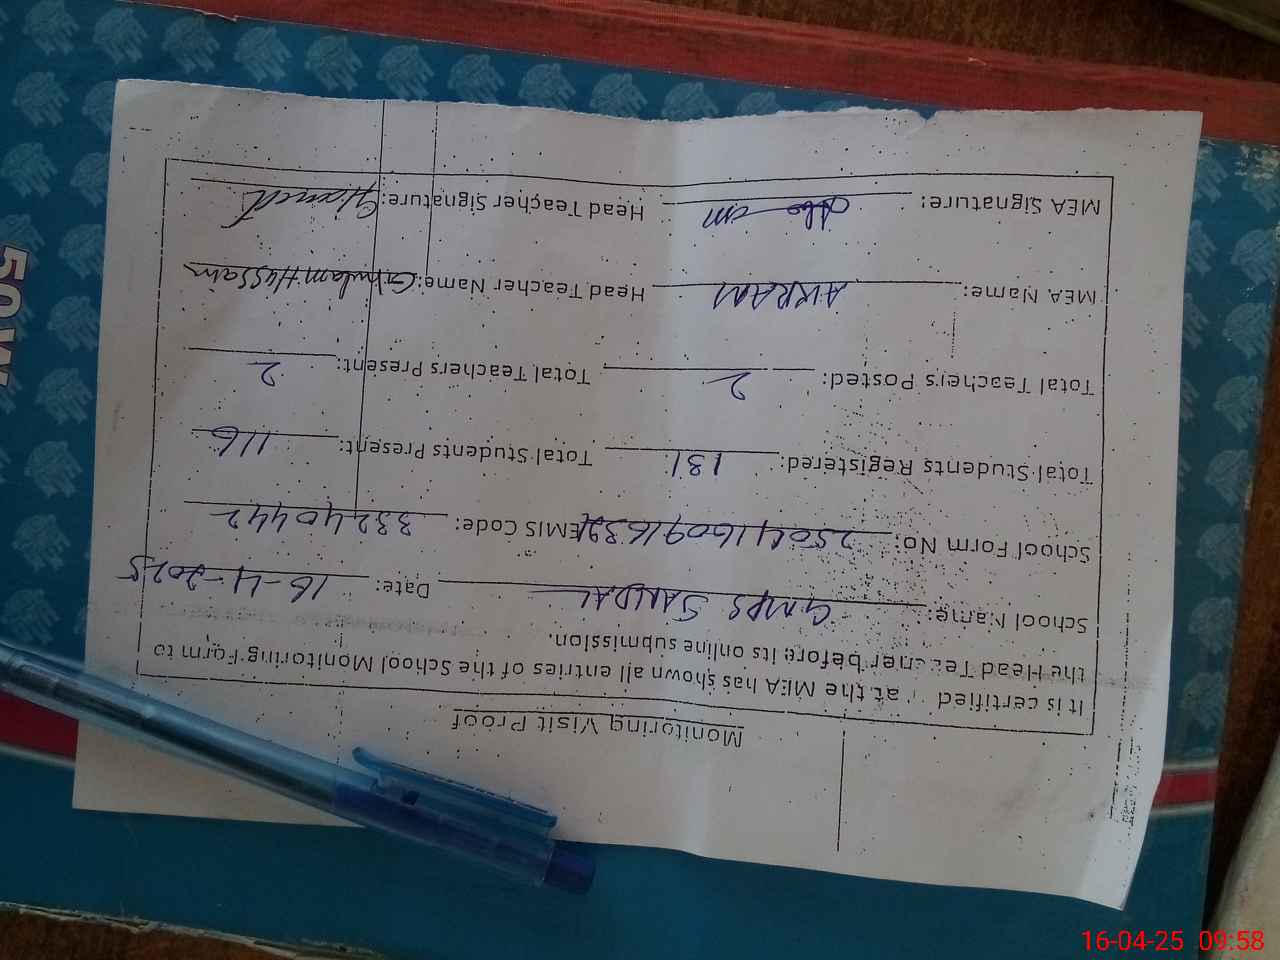 Monitoring Visit Proof
It is certified that the MEA has shown all entries of the School Monitoring Form to
the Head Teacher before its online submission.
School Name: GMPS SANDAL Date: 16-4-2025
School Form No: EMIS Code: 33240442
Total Students Registered: 131 Total Students Present: 116
Total Teachers Posted: 2 Total Teachers Present: 2
MEA Name: AKRAM Head Teacher Name: Ghulam Hussain
MEA Signature: Head Teacher Signature:
50W
16-04-25 09:58